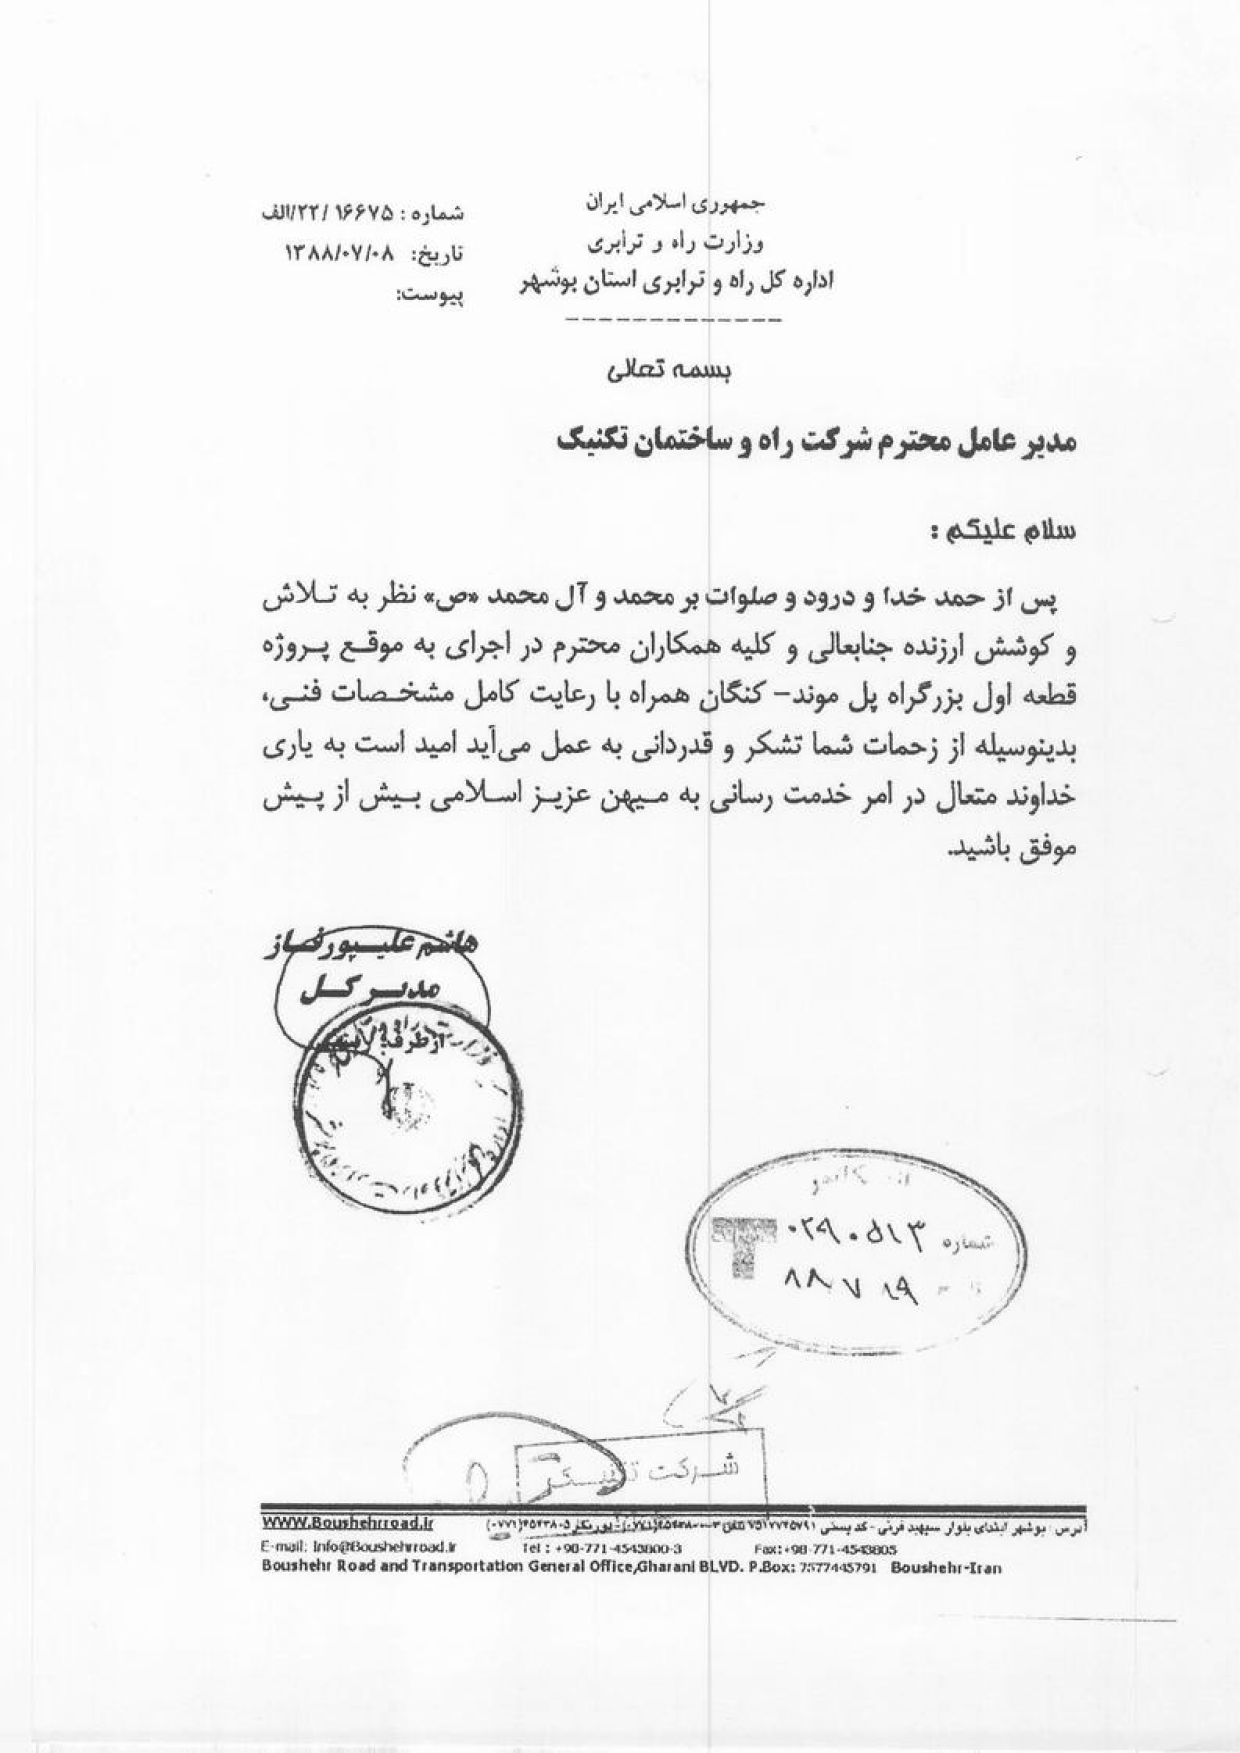 جمهوری اسلامی ایران
وزارت راه و ترابری
اداره کل راه و ترابری استان بوشهر
شماره : ۱۶۶۷۵ /۲۲/الف
تاریخ: ۱۳۸۸/۰۷/۰۸
پیوست:
بسمه تعالی
مدیر عامل محترم شرکت راه و ساختمان تکنیک
سلام علیکم :
پس از حمد خدا و درود و صلوات بر محمد و آل محمد «ص» نظر به تـلاش
و کوشش ارزنده جنابعالی و کلیه همکاران محترم در اجرای به موقـع پـروژه
قطعه اول بزرگراه پل موند- کنگان همراه با رعایت کامل مشخـصات فنـی،
بدینوسیله از زحمات شما تشکر و قدردانی به عمل می‌آید امید است به یاری
خداوند متعال در امر خدمت رسانی به مـیهن عزیـز اسـلامی بـیش از پـیش
موفق باشید.
هاشم علـیـپور فـاز
مدیـر کـل
از طرف
شماره ۰۲۹۰۵۱۳
۸۸ ۷ ۱۹
شـرکت
WWW.Boushehrroad.ir
آدرس : بوشهر ابتدای بلوار سپهبد قرنی - کد پستی ۷۵۱۷۷۴۵۷۹۱ تلفن ۳-۴۵۴۳۸۰۰(۰۷۷۱) - دورنگار ۴۵۴۳۸۰۵(۰۷۷۱)
E-mail: Info@Boushehrroad.ir Tel : +98-771-4543800-3 Fax:+98-771-4543805
Boushehr Road and Transportation General Office,Gharani BLVD. P.Box: 7577445791 Boushehr-Iran